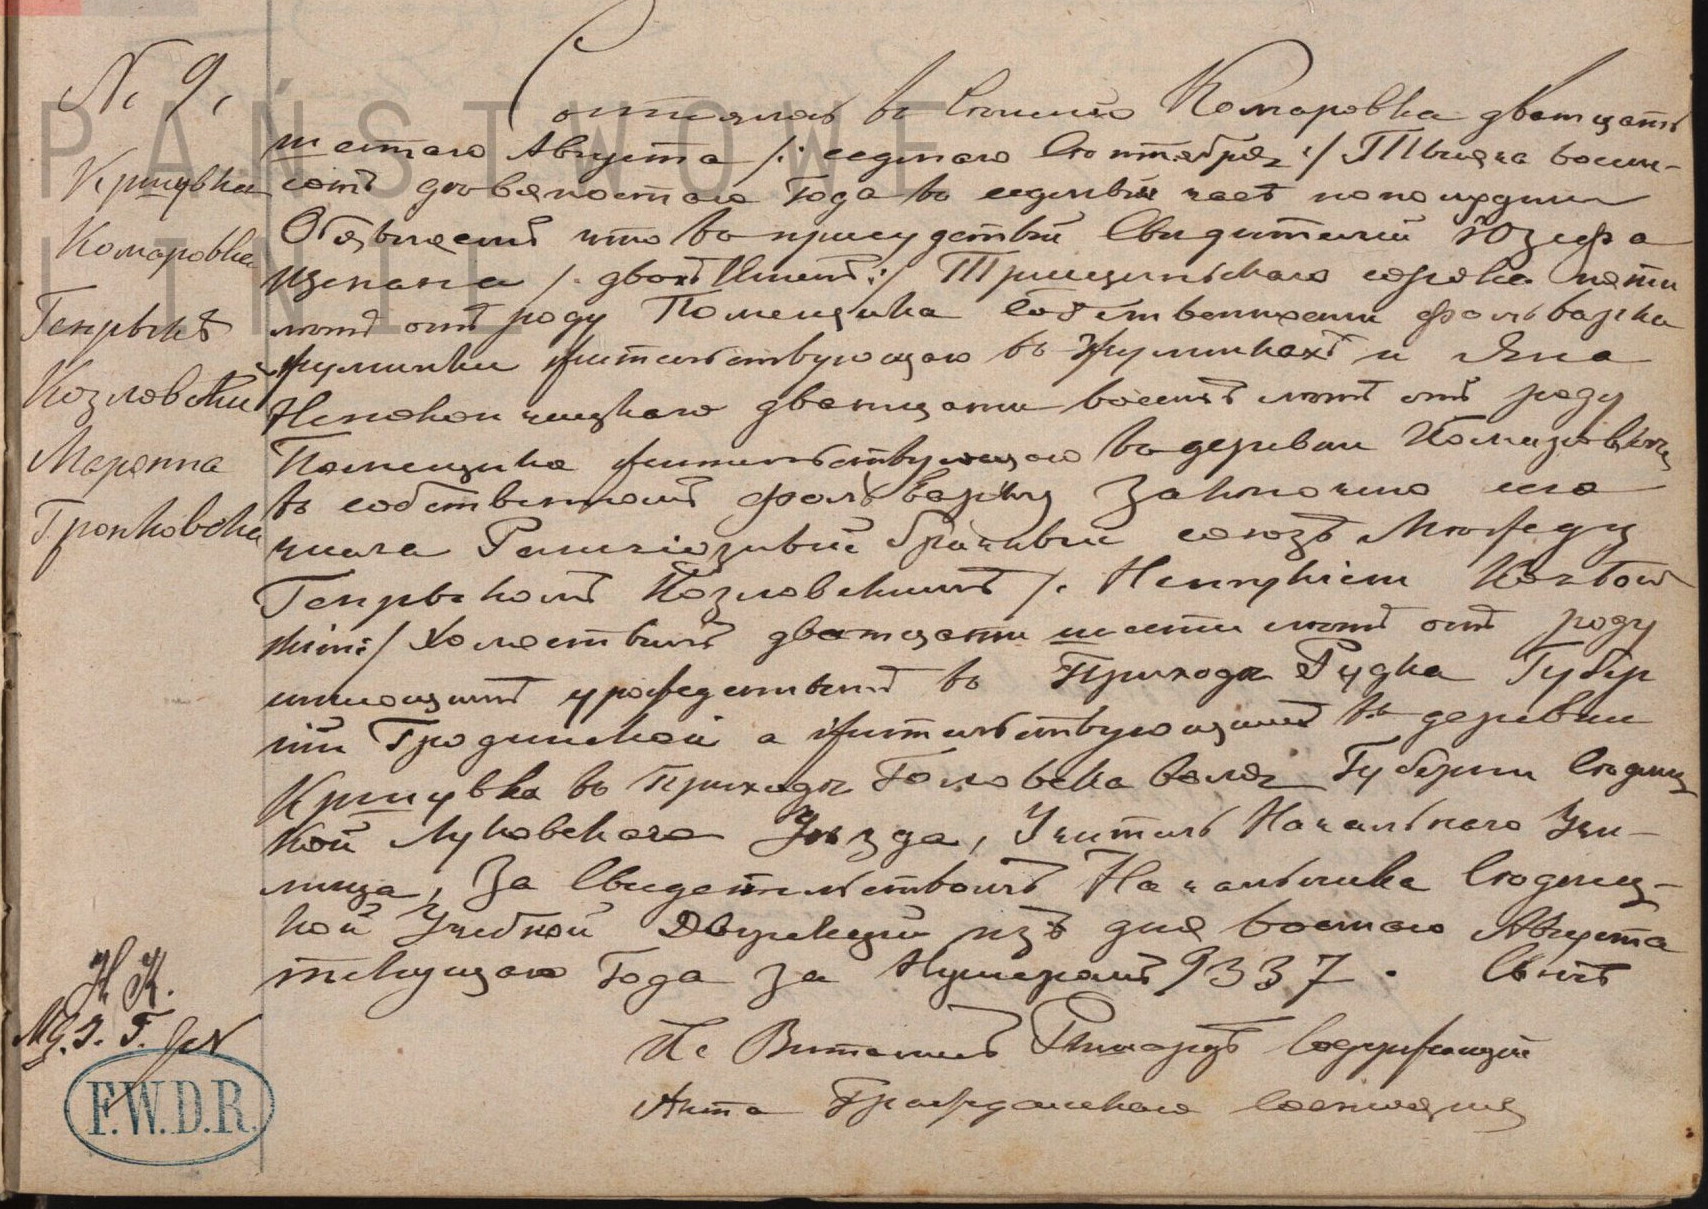 № 9,
Кршувка
Комаровка
Генрыкъ
Козловскій
Марянна
Гронковска
Состоялось въ Комаровка дватцать
шестаго Августа /: седмаго Сентября :/ Тысяча восем-
сотъ девяностаго Года въ седмый часъ пополудни
Объявляемъ что въ присудствіи Свидѣтелей Юзефа
/: двохъ Именъ :/ сорока пяти
лѣтъ отъ роду Помещика Собственности фольварка
Жулинки жительствующаго въ Жулинкахъ и Яна
Непокойчицкаго дватцати восемъ лѣтъ отъ роду
Помещика жительствующаго въ деревни
въ собственномъ фольварку Заключено сего
числа Религіозный брачный союзъ Между
Генрыкомъ Козловскимъ /: Henrykiem Kozłow
skim :/ Холостымъ дватцати шести лѣтъ отъ роду
имеющимъ урожденнымъ въ Приходѣ Рудка Губер
ніи Гродинской а жительствующимъ въ деревни
Кршувка въ Приходѣ Губерни Сѣдлец
кой Луковскаго Уѣзда, Учитель Начальнаго Учи-
лища, За Свидетельствомъ Начальника Сѣдлец-
кой Учебной Дырекціи изъ дня восмаго Августа
текущаго Года за Нумеромъ 9337. Сынъ
Кс Содержащій
Акта Гражданскаго Состоянія
Н. К.
М. Г.
F.W.D.R.
PAŃSTWOWE